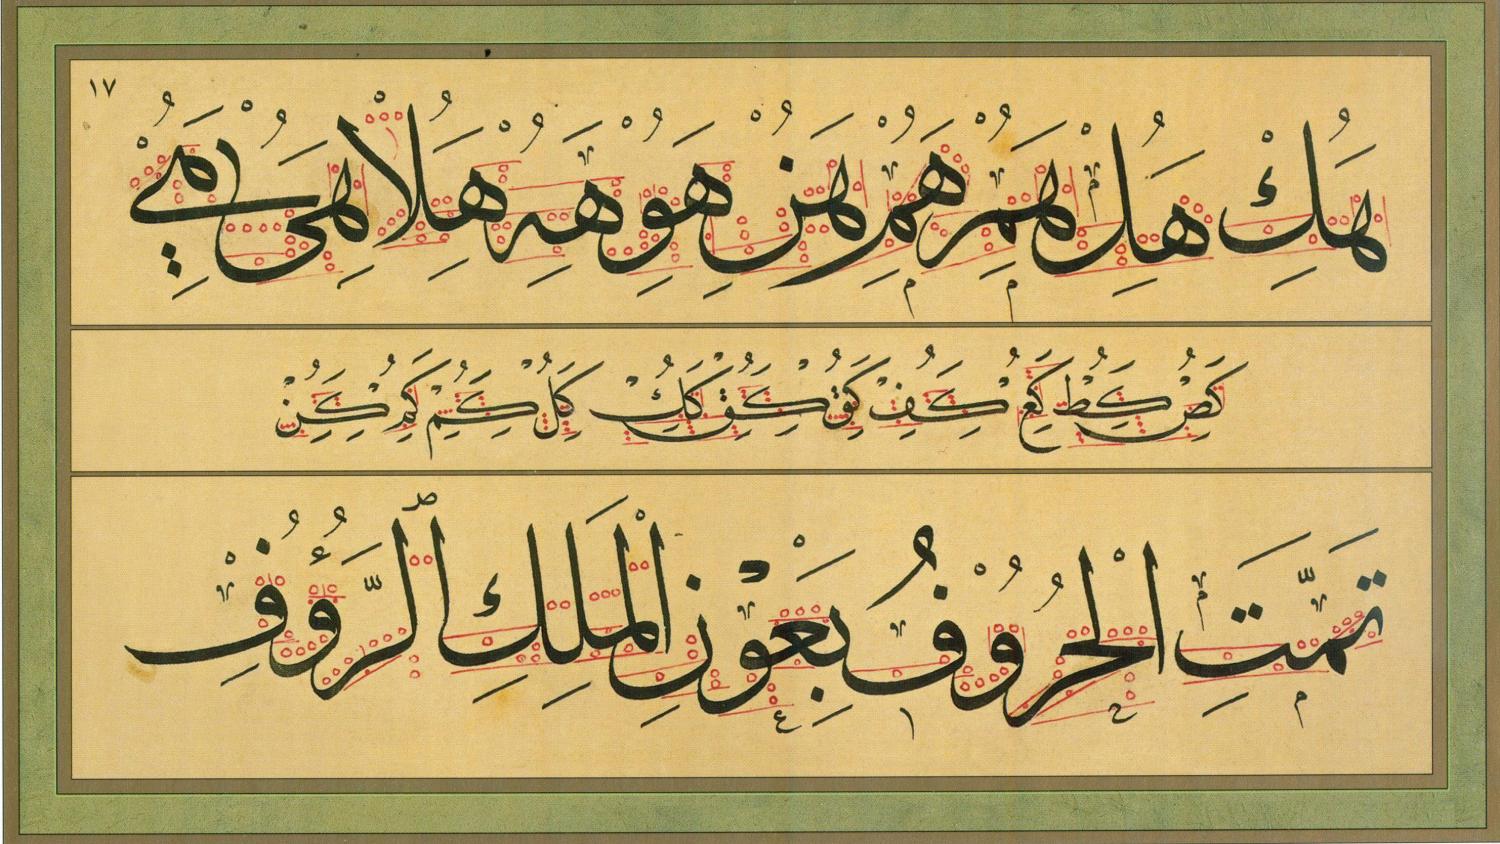 ١٧
هك هل هم هم هن هو هه هلا هى هي
كص كط كع كف كق كق كك كل كم كم كن
تَمَّتِ الْحُرُوفُ بِعَوْنِ الْمَلِكِ الرَّؤُفِ